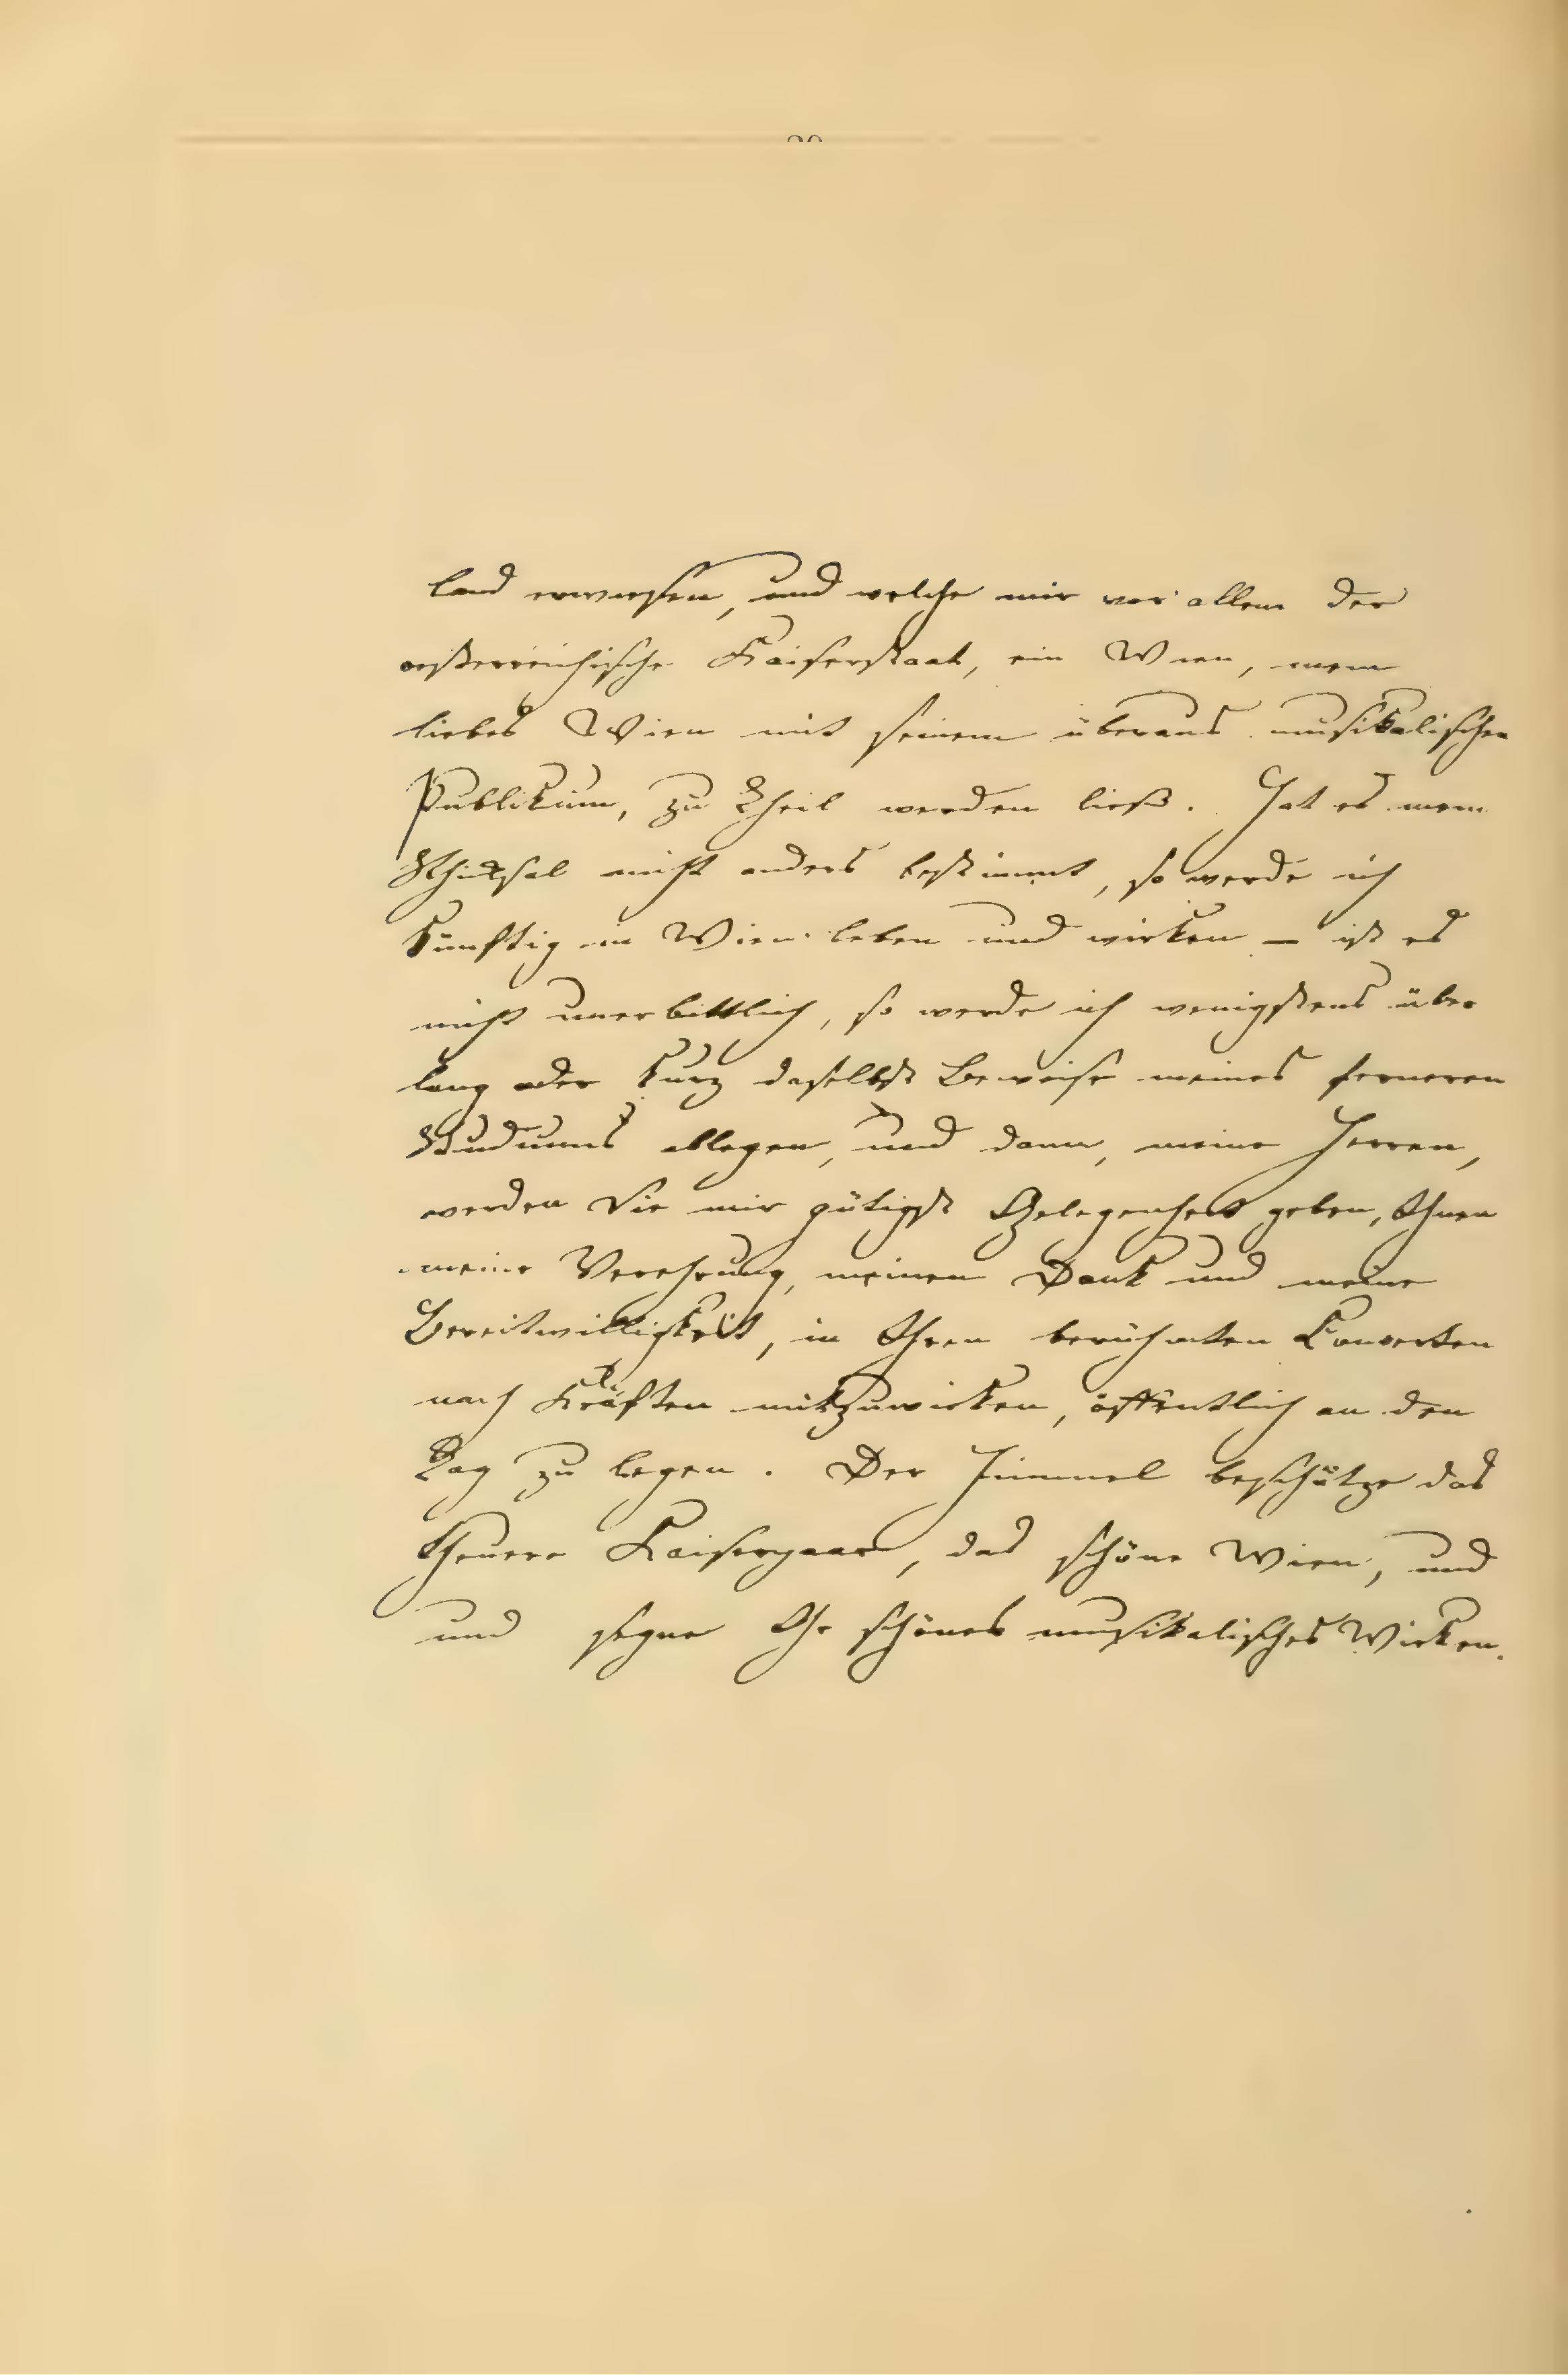 land erwiesen, und welche mir vor allem der
oesterreichische Kaiserstaat, ein Wien, mein
liebes Wien mit seinem überaus musikalischen
Publikum, zu Theil werden ließ. Hat es mein
Schicksal nicht anders bestimmt, so werde ich
künftig in Wien leben und wirken – ist es
nicht unerbittlich, so werde ich wenigstens über
lang oder kurz daselbst Beweise meines ferneren
Studiums ablegen, und dann, meine Herren,
werden Sie mir gütigst Gelegenheit geben, Ihnen
meine Verehrung, meinen Dank und meine
Bereitwilligkeit, in Ihren berühmten Konzerten
nach Kräften mitzuwirken, öffentlich an den
Tag zu legen. Der Himmel beschütze das
theuere Kaiserpaar, das schöne Wien, und
und segne Ihr schönes musikalisches Wirken.